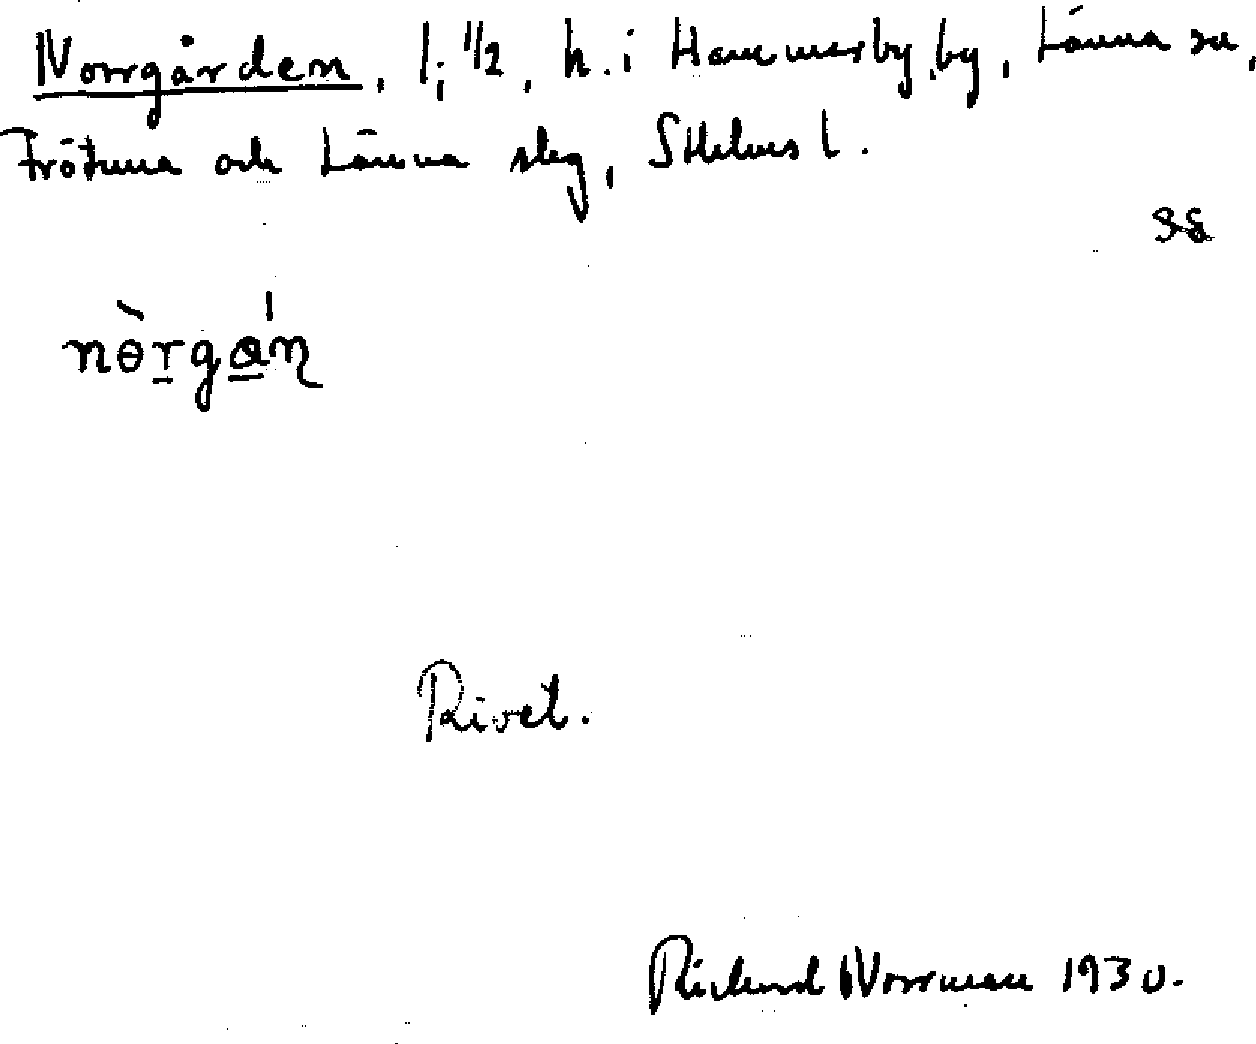 Norrgården, 1; 1/2, h. i Hammarby by, Länna sn,
Frötuna och Länna skg, Sthlms l.
nòrgán
Rivet.
Rickard Norrman 1930.